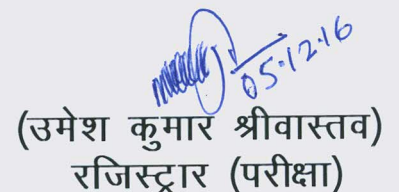 05.12.16
(उमेश कुमार श्रीवास्तव)
रजिस्ट्रार (परीक्षा)